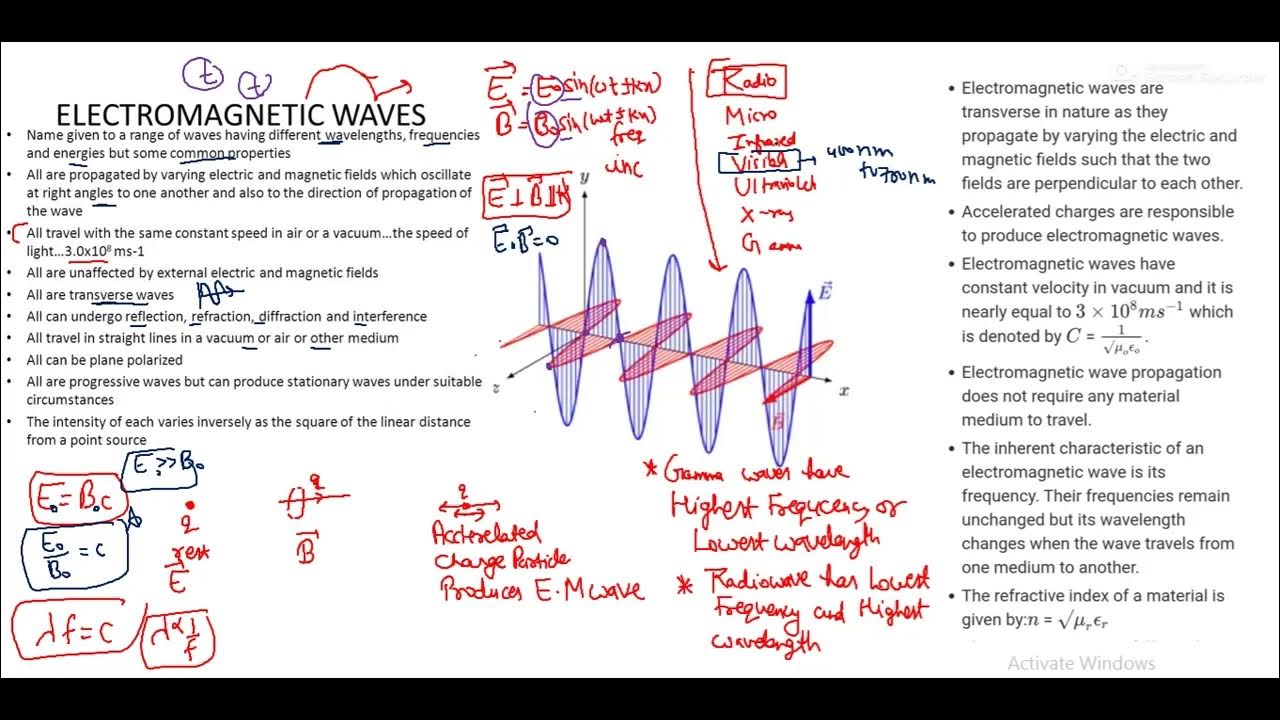 ELECTROMAGNETIC WAVES
• Name given to a range of waves having different wavelengths, frequencies
and energies but some common properties
• All are propagated by varying electric and magnetic fields which oscillate
at right angles to one another and also to the direction of propagation of
the wave
• All travel with the same constant speed in air or a vacuum...the speed of
light...3.0x10⁸ ms-1
• All are unaffected by external electric and magnetic fields
• All are transverse waves
• All can undergo reflection, refraction, diffraction and interference
• All travel in straight lines in a vacuum or air or other medium
• All can be plane polarized
• All are progressive waves but can produce stationary waves under suitable
circumstances
• The intensity of each varies inversely as the square of the linear distance
from a point source
E₀ >> B₀
E₀ = B₀c
E₀/B₀ = c
λf = c
λ ∝ 1/f
q
rest
E⃗
q
B⃗
q
Accterelated
Charge Particle
Produces E.M wave
E⃗ = E₀ sin(ωt ± kx)
B⃗ = B₀ sin(ωt ± kx)
freq
inc
E⃗ ⊥ B⃗
E⃗ . B⃗ = 0
Radio
Micro
Infrared
Visibl
400nm
to 700nm
Ultraviolet
X-ray
y
E⃗
x
z
B⃗
* Gamma waves have
Highest Frequcency or
Lowest wavelength
* Radiowave has Lowest
Frequency and Highest
wavelength
• Electromagnetic waves are
transverse in nature as they
propagate by varying the electric and
magnetic fields such that the two
fields are perpendicular to each other.
• Accelerated charges are responsible
to produce electromagnetic waves.
• Electromagnetic waves have
constant velocity in vacuum and it is
nearly equal to 3 × 10⁸ms⁻¹ which
is denoted by C = 1/√μₒϵₒ.
• Electromagnetic wave propagation
does not require any material
medium to travel.
• The inherent characteristic of an
electromagnetic wave is its
frequency. Their frequencies remain
unchanged but its wavelength
changes when the wave travels from
one medium to another.
• The refractive index of a material is
given by:n = √μᵣϵᵣ
Activate Windows